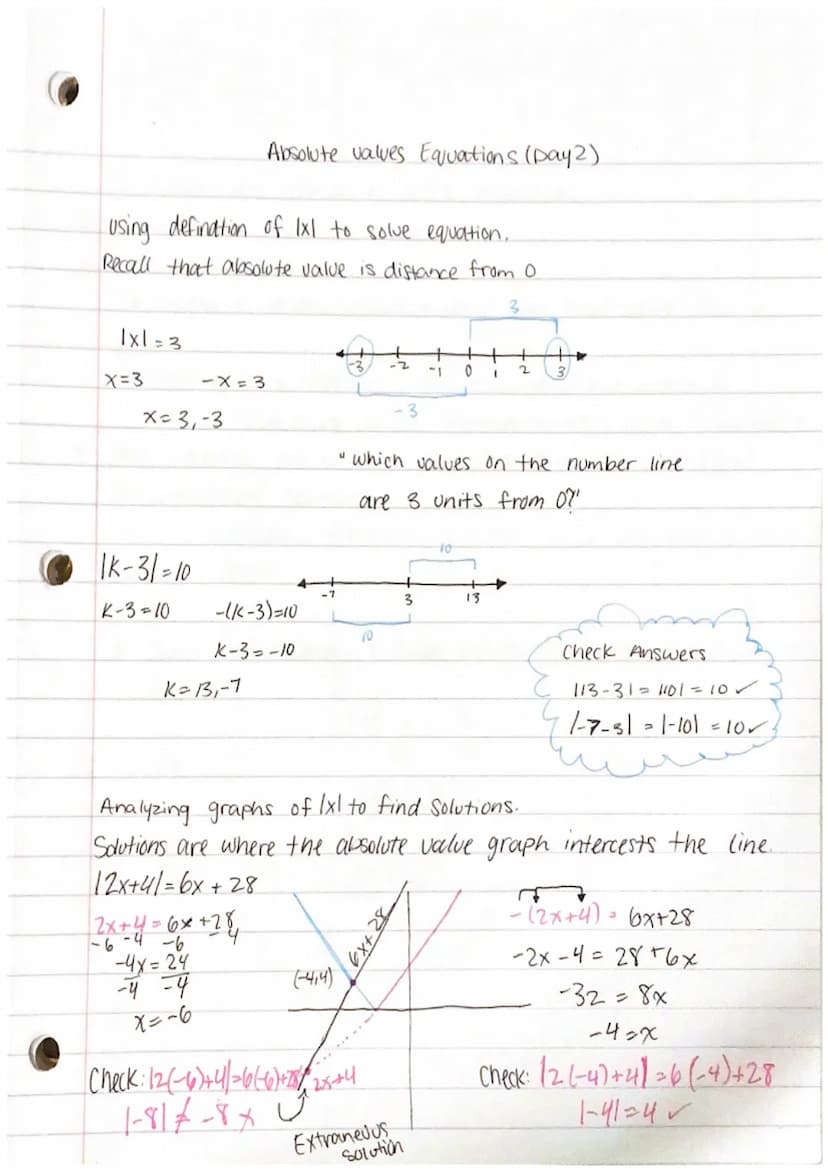 Absolute values Equations (Day 2)
using defindtion of |x| to solve equation.
Recall that absolute value is distance from 0
|x| = 3
x=3 -x = 3
x= 3, -3
3
-3 -2 -1 0 1 2 3
-3
"which values on the number line
are 3 units from 0?"
|k-3| = 10
k-3=10 -(k-3)=10
k-3 = -10
k= 13, -7
10
-7 3 13
10
Check Answers
|13-3| = |10| = 10 ✓
|-7-3| = |-10| = 10 ✓
Analyzing graphs of |x| to find solutions.
Solutions are where the absolute value graph intercests the line.
|2x+4| = 6x + 28
2x+4 = 6x +28
-6 -4 -6 -4
-4x = 24
-4 -4
x= -6
Check: |2(-6)+4|=6(-6)+28
|-8| ≠ -8 x
6x+28
(-4,4)
2x+4
Extraneous
solution
-(2x+4) = 6x+28
-2x -4 = 28 +6x
-32 = 8x
-4=x
Check: |2(-4)+4| = 6(-4)+28
|-4|=4 ✓